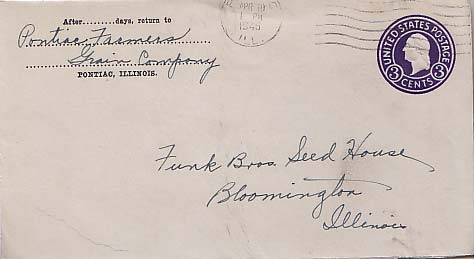 After........days, return to
Pontiac Farmers
Grain Company
PONTIAC, ILLINOIS.
APR 10
PM
1945
ILL.
UNITED STATES POSTAGE
3 CENTS 3
Funk Bros. Seed House
Bloomington
Illinois